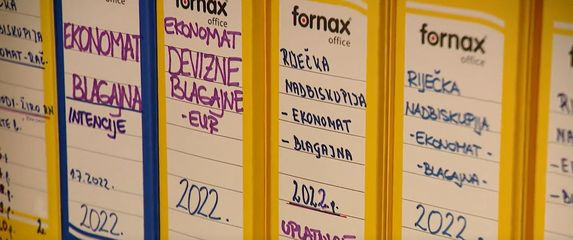 BISKUPIJA
EKONOMAT
BLAGAJNA
INTENCIJE
1.7.2022.
2022.
fornax
office
EKONOMAT
DEVIZNE
BLAGAJNE
- EUR
2022.
fornax
office
RIJEČKA
NADBISKUPIJA
- EKONOMAT
- BLAGAJNA
2022.g.
fornax
office
RIJEČKA
NADBISKUPIJA
- EKONOMAT -
- BLAGAJNA -
2022.